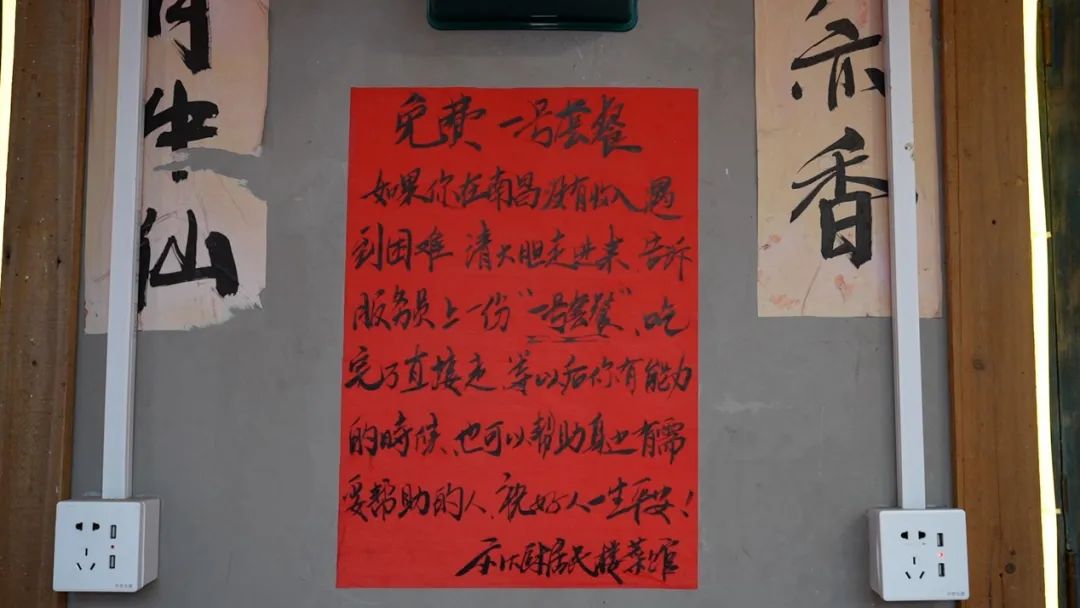 免費 一号套餐
如果你在南昌没有收入 遇
到困难 清大胆走进来、告诉
服务员上一份“一号套餐”、吃
完了直接走、等以后你有能力
的時候、也可以帮助身边有需
要帮助的人、祝好人一生平安！
大厨居民楼菜馆
生仙
亦香